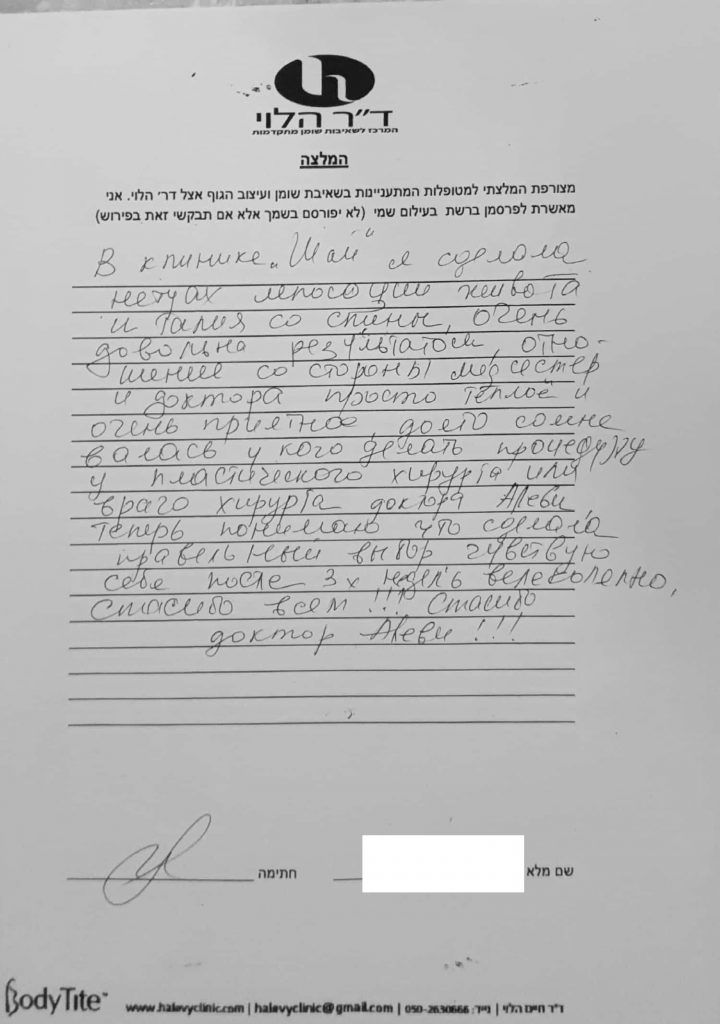 ד״ר הלוי
המרכז לשאיבות שומן מתקדמות
המלצה
מצורפת המלצתי למטופלות המתעניינות בשאיבת שומן ועיצוב הגוף אצל דר׳ הלוי. אני
מאשרת לפרסמן ברשת בעילום שמי (לא יפורסם בשמך אלא אם תבקשי זאת בפירוש)
В клинике „Шай“ я сделала
нетуах липосоции живота
и талия со спины, очень
довольна результатом, отно-
шение со стороны медсестер
и доктора просто теплоё и
очень приятное, долго сомне
валась у кого делать процедуру
у пластического хирурга или
враго хирурга доктора Алеви,
теперь понимаю что сделала
правельный выбор чувствую
себе после 3х недель велеколепно,
Спасибо всем !!! Спасибо
доктор Алеви !!!
שם מלא
חתימה
BodyTite™
ד״ר חיים הלוי | נייד: 050-2630666 | halevyclinic@gmail.com | www.halevyclinic.com